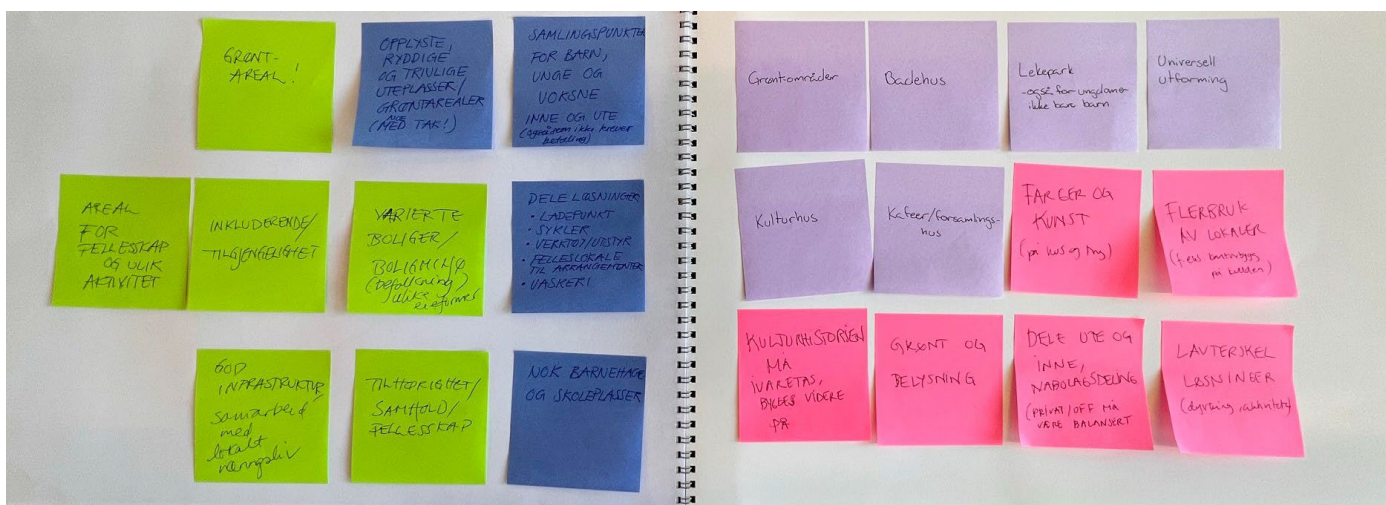 GRØNT-
AREAL!
OPPLYSTE,
RYDDIGE
OG TRIVLIGE
UTEPLASSER/
GRØNTAREALER
(MED TAK!)
SAMLINGSPUNKTER
FOR BARN,
UNGE OG
VOKSNE
INNE OG UTE
(også som ikke krever
betaling)
AREAL
FOR
FELLESSKAP
OG ULIK
AKTIVITET
INKLUDERENDE/
TILGJENGELIGHET
VARIERTE
BOLIGER/
BOLIGMILJØ
(befolkning)
ulike
eieformer
DELE LØSNINGER
• LADEPUNKT
• SYKLER
• VERKTØY/UTSTYR
• FELLESLOKALE
TIL ARRANGEMENTER
• VASKERI
GOD
INFRASTRUKTUR,
samarbeid
med
lokalt
næringsliv
TILHØRIGHET/
SAMHOLD/
FELLESSKAP
NOK BARNEHAGE
OG SKOLEPLASSER
Grøntområder
Badehus
Lekepark
-også for ungdommer
ikke bare barn
Universell
utforming
Kulturhus
Kafeer/forsamlings-
hus
FARGER OG
KUNST
(på hus og )
FLERBRUK
AV LOKALER
(f.eks
på kvelden)
KULTURHISTORIEN
MÅ
IVARETAS,
BYGGES VIDERE
PÅ
GRØNT OG
BELYSNING
DELE UTE OG
INNE,
NABOLAGSDELING
(PRIVAT/OFF MÅ
VÆRE BALANSERT
LAVTERSKEL
LØSNINGER
(dyrking,